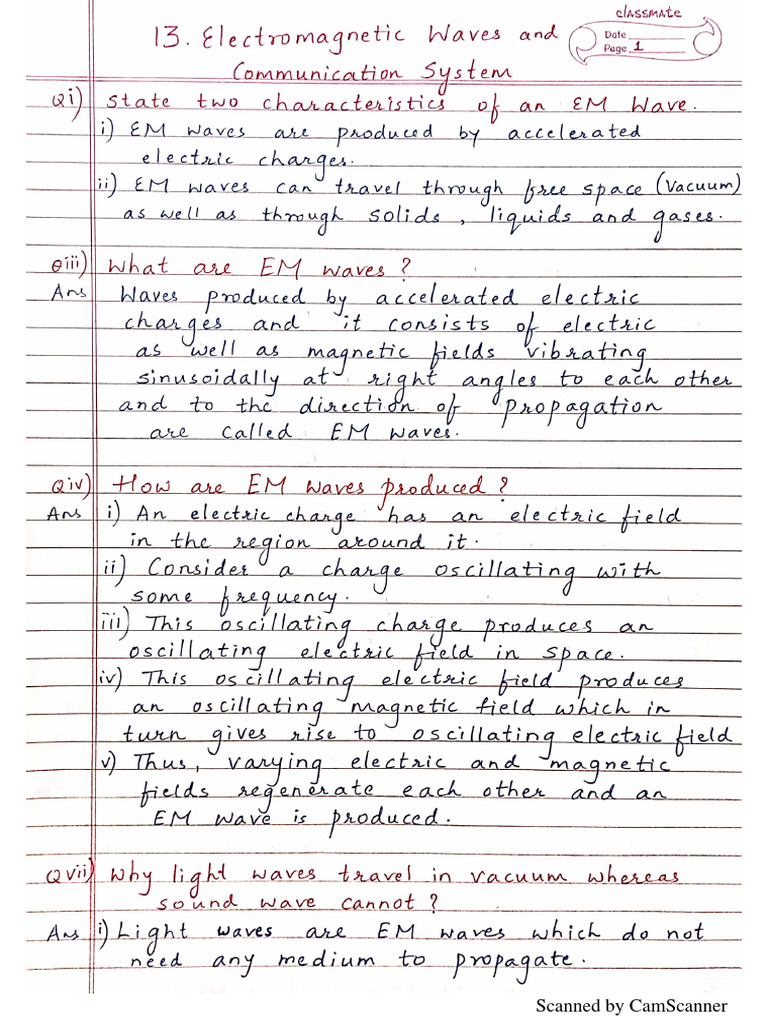 classmate
13. Electromagnetic Waves and
Date
Page 1
Communication System
Qi) State two characteristics of an EM Wave.
i) EM waves are produced by accelerated
electric charges.
ii) EM waves can travel through free space (Vacuum)
as well as through solids, liquids and gases.
Qiii) What are EM waves?
Ans Waves produced by accelerated electric
charges and it consists of electric
as well as magnetic fields vibrating
sinusoidally at right angles to each other
and to the direction of propagation
are called EM waves.
Qiv) How are EM waves produced?
Ans i) An electric charge has an electric field
in the region around it.
ii) Consider a charge oscillating with
some frequency.
iii) This oscillating charge produces an
oscillating electric field in space.
iv) This oscillating electric field produces
an oscillating magnetic field which in
turn gives rise to oscillating electric field
v) Thus, varying electric and magnetic
fields regenerate each other and an
EM wave is produced.
Qvii) Why light waves travel in vacuum whereas
sound wave cannot?
Ans i) Light waves are EM waves which do not
need any medium to propagate.
Scanned by CamScanner